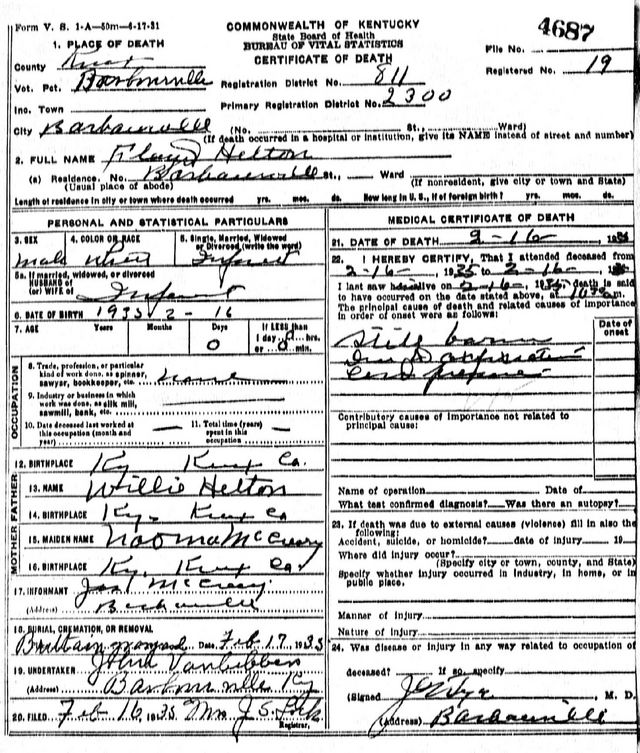 Form V. S. 1-A—50m—6-17-31
COMMONWEALTH OF KENTUCKY
State Board of Health
BUREAU OF VITAL STATISTICS
CERTIFICATE OF DEATH
4687
File No.
Registered No. 19
1. PLACE OF DEATH
County Knox
Vot. Pct. Barbourville
Registration District No. 811
Inc. Town
Primary Registration District No. 2300
City Barbourville (No. St., Ward)
(If death occurred in a hospital or institution, give its NAME instead of street and number)
2. FULL NAME Floyd Helton
(a) Residence. No. Barbourville St., Ward
(Usual place of abode) (If nonresident, give city or town and State)
Length of residence in city or town where death occurred yrs. mos. ds. How long in U. S., if of foreign birth? yrs. mos. ds.
PERSONAL AND STATISTICAL PARTICULARS
3. SEX 4. COLOR OR RACE 5. Single, Married, Widowed or Divorced (write the word)
male White Infant
5a. If married, widowed, or divorced
HUSBAND of
(or) WIFE of Infant
6. DATE OF BIRTH 1935 2 - 16
7. AGE Years Months Days If LESS than
0 1 day 0 hrs.
or 0 min.
OCCUPATION
8. Trade, profession, or particular
kind of work done, as spinner,
sawyer, bookkeeper, etc. none
9. Industry or business in which
work was done, as silk mill,
sawmill, bank, etc.
10. Date deceased last worked at
this occupation (month and
year)
11. Total time (years)
spent in this
occupation
12. BIRTHPLACE Ky Knox Co.
FATHER
13. NAME Willie Helton
14. BIRTHPLACE Ky. Knox Co
MOTHER
15. MAIDEN NAME Naoma McCreary
16. BIRTHPLACE Ky. Knox Co.
17. INFORMANT McCreary
(Address) Barbourville
18. BURIAL, CREMATION, OR REMOVAL
Brittain Date Feb 17 1935
19. UNDERTAKER John Vanbebber
(Address) Barbourville Ky
20. FILED Feb 16 1935 Mrs J. S.
Registrar.
MEDICAL CERTIFICATE OF DEATH
21. DATE OF DEATH 2-16 193
22. I HEREBY CERTIFY, That I attended deceased from
2-16-, 1935 to 2-16-, 193
I last saw h alive on 2-16-, 1935, death is said
to have occurred on the date stated above, at m.
The principal cause of death and related causes of importance
in order of onset were as follows:
Date of
onset
Still born
Cord
Contributory causes of importance not related to
principal cause:
Name of operation Date of
What test confirmed diagnosis? Was there an autopsy?
23. If death was due to external causes (violence) fill in also the
following:
Accident, suicide, or homicide? date of injury 19
Where did injury occur?
(Specify city or town, county, and State)
Specify whether injury occurred in industry, in home, or in
public place.
Manner of injury
Nature of injury
24. Was disease or injury in any way related to occupation of
deceased? If so, specify
(Signed) , M. D.
(Address) Barbourville